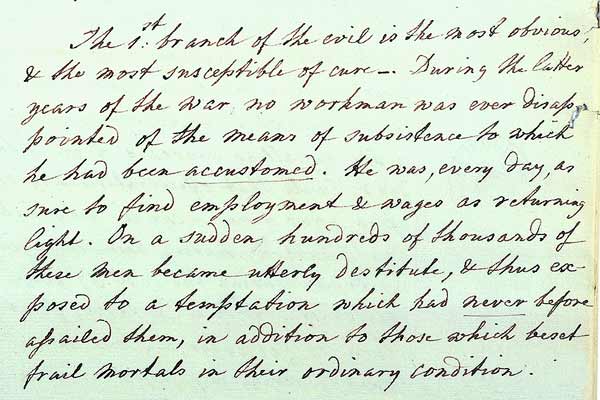 The 1.st branch of the evil is the most obvious,
& the most susceptible of cure—. During the latter
years of the war, no workman was ever disap-
pointed of the means of subsistence to which
he had been accustomed. He was, every day, as
sure to find employment & wages as returning
light. On a sudden, hundreds of thousands of
these men became utterly destitute, & thus ex-
posed to a temptation which had never before
assailed them, in addition to those which beset
frail mortals in their ordinary condition.